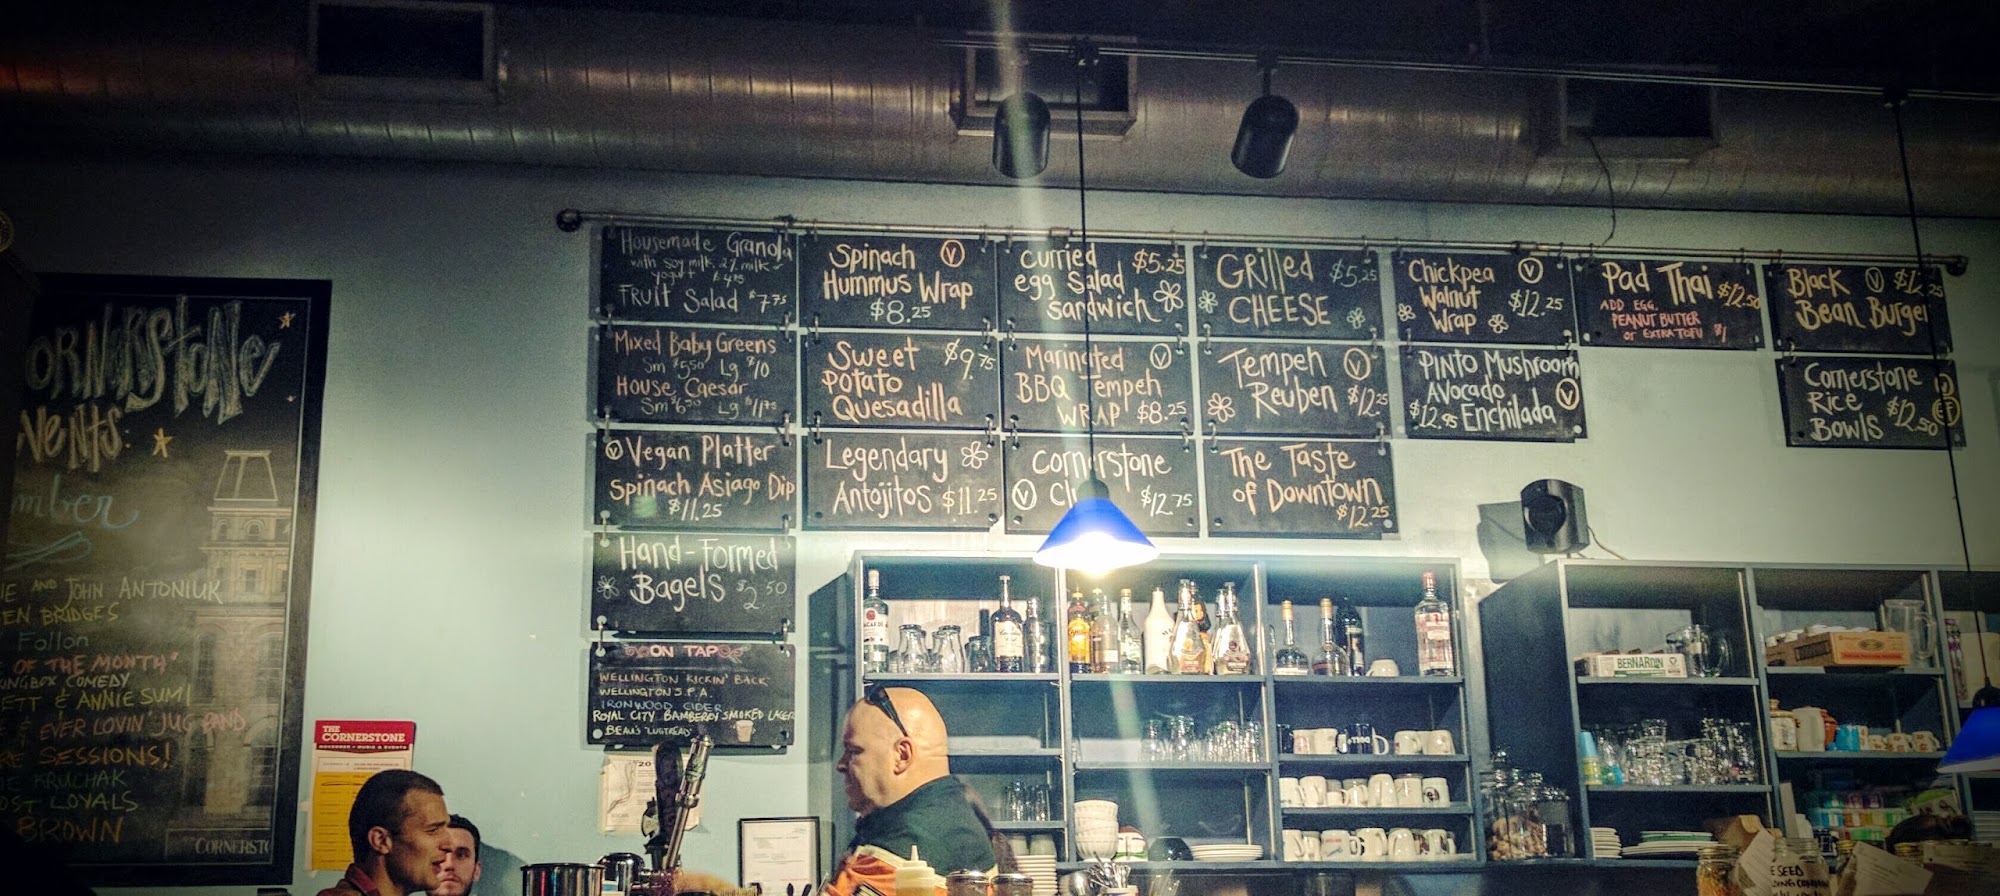 CORNERSTONE
EVENTS:
mber
AND JOHN ANTONIUK
EN BRIDGES
Fallon
OF THE MONTH"
COMEDY
ETT & ANNIE SUMI
& EVER LOVIN' JUG BAND
RE SESSIONS!
KRUCHAK
OST LOYALS
BROWN
CORNERSTO
THE
CORNERSTONE
NOVEMBER • MUSIC & EVENTS
Housemade Granola
with soy milk, 2% milk
yogurt $4.75
FRUIT Salad $7.75
Mixed Baby Greens
Sm $5.50 Lg $10
House Caesar
Sm $6.50 Lg $11.75
V Vegan Platter
Spinach Asiago Dip
$11.25
Hand-Formed
Bagels $2.50
ON TAP
WELLINGTON KICKIN' BACK
WELLINGTON S.P.A.
IRONWOOD CIDER
ROYAL CITY SMOKED LAGER
BEAU'S "LUGTREAD"
Spinach V
Hummus Wrap
$8.25
Sweet $9.75
Potato
Quesadilla
Legendary
Antojitos $11.25
Curried $5.25
egg Salad
sandwich
Marinated V
BBQ Tempeh
WRAP $8.25
Cornerstone
V $12.75
Grilled $5.25
CHEESE
Tempeh V
Reuben $12.25
The Taste
of Downtown
$12.25
Chickpea V
Walnut $12.25
Wrap
PINTO Mushroom
Avocado V
$12.95 Enchilada
Pad Thai $12.50
ADD EGG,
PEANUT BUTTER
OR EXTRA TOFU $1
Black V $12.25
Bean Burger
Cornerstone V
Rice GF
Bowls $12.50
BERNARDIN
SEED